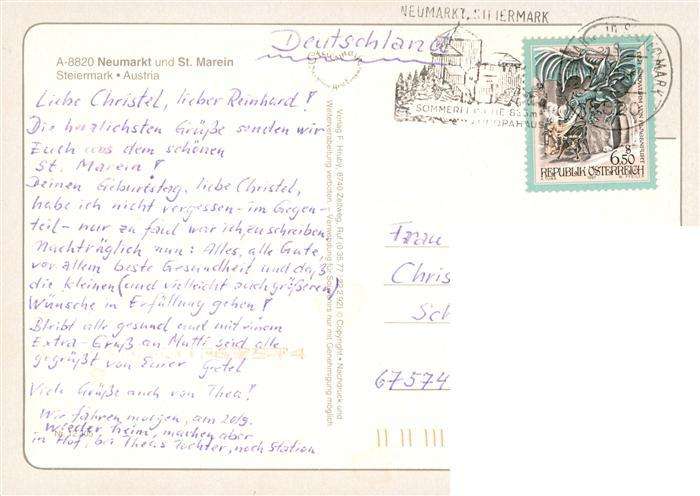 NEUMARKT, STEIERMARK
Deutschland
A-8820 Neumarkt und St. Marein
Steiermark • Austria
SOMMERFRISCHE 835m
EUROPAHAUS
6.50
REPUBLIK ÖSTERREICH
Liebe Christel, lieber Reinhard!
Die herzlichsten Grüße senden wir
Euch aus dem schönen
St. Marein!
Deinen Geburtstag, liebe Christel,
habe ich nicht vergessen - im Gegen-
teil - nur zu faul war ich, zu schreiben.
Nachträglich nun: Alles, alle Gute,
vor allem beste Gesundheit und daß
die kleinen (und vielleicht auch größeren)
Wünsche in Erfüllung gehen!
Bleibt alle gesund und mit einem
Extra-Gruß an Mutti seid alle
gegrüßt von Eurer Gretel
Viele Grüße auch von Thea!
Wir fahren morgen, am 20.9.
wieder heim, machen aber
in Hof, bei Theas Tochter, noch Station
Verlag F. Hruby, 8740 Zeltweg, Ruf (0 35 77) © Copyright • Nachdruck und
Weiterverarbeitung verboten. nur mit Genehmigung möglich
Frau
Chris
Sch
67574